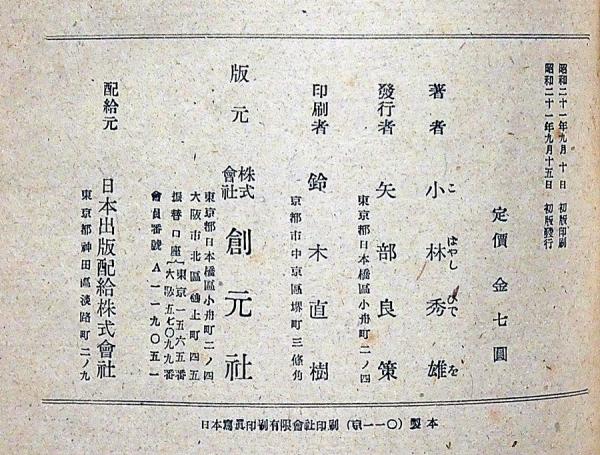 昭和二十一年九月十日 初版印刷
昭和二十一年九月十五日 初版發行
定價 金七圓
著者 小林秀雄
こ はやし ひで を
發行者 矢部良策
東京都日本橋區小舟町二ノ四
印刷者 鈴木直樹
京都市中京區堺町三條角
版元 株式會社 創元社
東京都日本橋區小舟町二ノ四
大阪市北區樋上町四五
振替口座(東京一五六五番
大阪五七〇九九番
會員番號 A一一九〇五一
配給元 日本出版配給株式會社
東京都神田區淡路町二ノ九
日本寫眞印刷有限會社印刷 (京一一〇) 製本